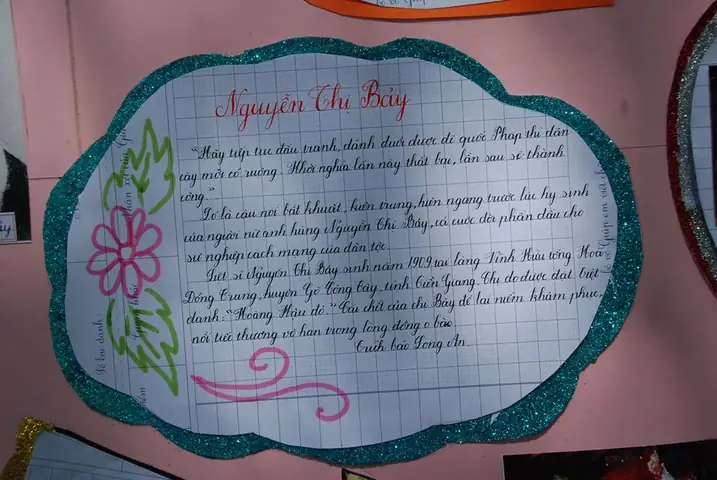 Nguyễn Thị Bảy
"Hãy tiếp tục đấu tranh, đánh đuổi được đế quốc Pháp thì dân
cày mới có ruộng. Khởi nghĩa lần này thất bại, lần sau sẽ thành
công."
Đó là câu nói bất khuất, kiên trung, hiên ngang trước lúc hy sinh
của người nữ anh hùng Nguyễn Thị Bảy, cả cuộc đời phấn đấu cho
sự nghiệp cách mạng của dân tộc.
Liệt sĩ Nguyễn Thị Bảy sinh năm 1909 tại làng Vĩnh Hựu tổng Hoà
Đồng Trung, huyện Gò Công Tây, tỉnh Tiền Giang. Chị do được đặt biệt
danh: "Hoàng Hậu đỏ." Cái chết của chị Bảy để lại niềm khâm phục,
nỗi tiếc thương vô hạn trong lòng đồng o bào
Trích báo Long An